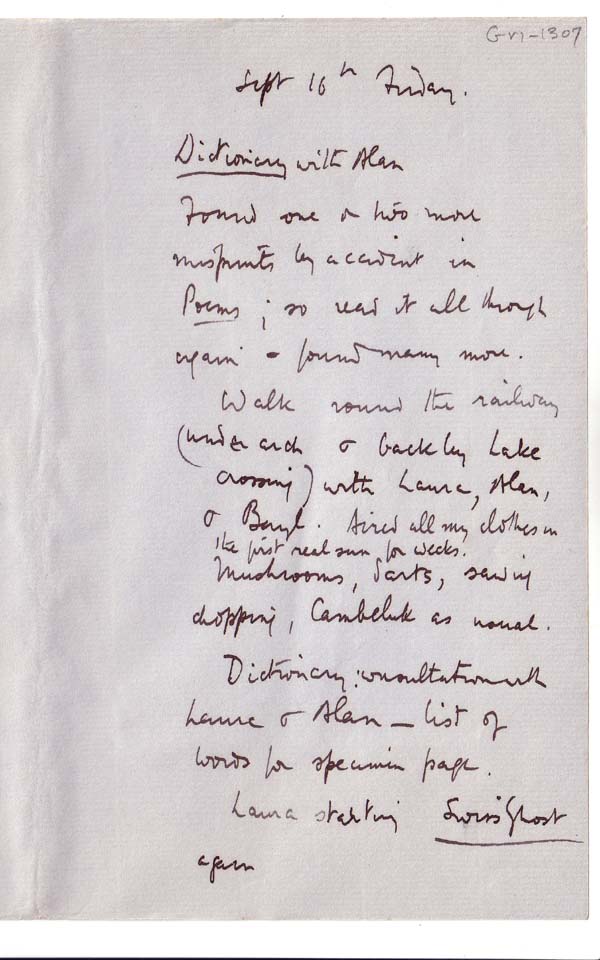 Gri-1307
Sept 16th Friday.
Dictionary with Alan
Found one or two more
misprints by accident in
Poems; so read it all through
again & found many more.
Walk round the railway
(under arch & back by Lake
crossing) with Laura, Alan,
& Beryl. Aired all my clothes in
the first real sun for weeks.
Mushrooms, darts, sawing
chopping, Cambeluk as usual.
Dictionary: consultation with
Laura & Alan – list of
words for specimen page.
Laura starting Swiss Ghost
again